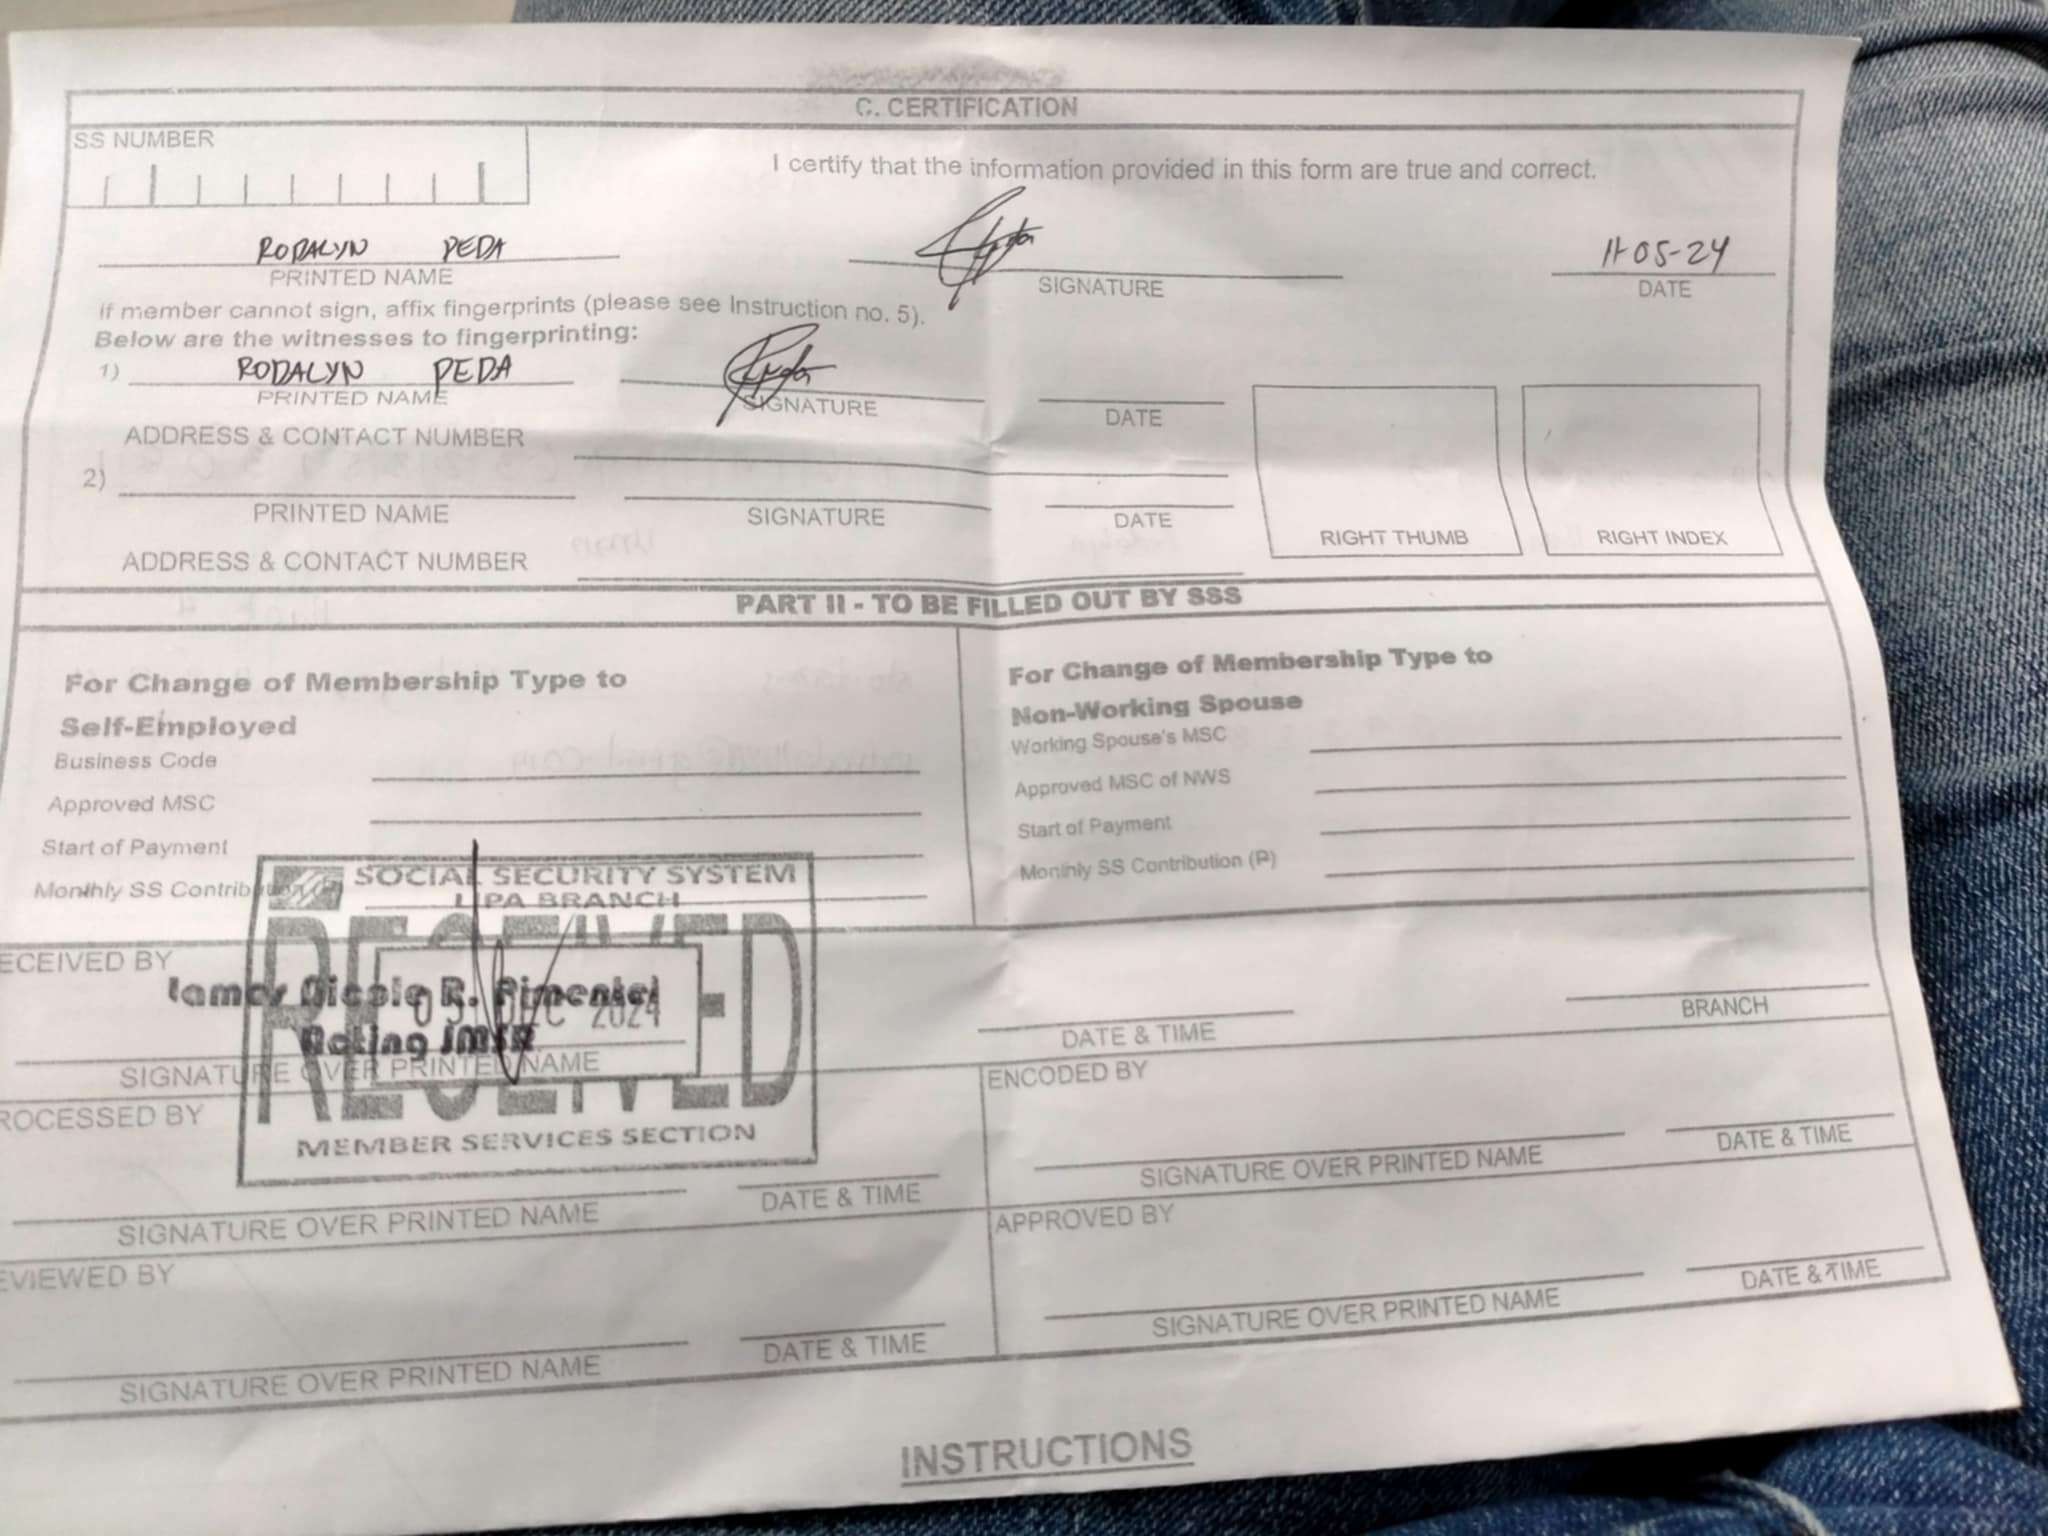 C. CERTIFICATION
SS NUMBER
I certify that the information provided in this form are true and correct.
RODALYN PEDA
11-05-24
PRINTED NAME
SIGNATURE
DATE
If member cannot sign, affix fingerprints (please see Instruction no. 5).
Below are the witnesses to fingerprinting:
1) RODALYN PEDA
PRINTED NAME
SIGNATURE
DATE
ADDRESS & CONTACT NUMBER
2)
PRINTED NAME
SIGNATURE
DATE
RIGHT THUMB
RIGHT INDEX
ADDRESS & CONTACT NUMBER
PART II - TO BE FILLED OUT BY SSS
For Change of Membership Type to
Self-Employed
Business Code
Approved MSC
Start of Payment
Monthly SS Contribution
For Change of Membership Type to
Non-Working Spouse
Working Spouse's MSC
Approved MSC of NWS
Start of Payment
Monthly SS Contribution (P)
SOCIAL SECURITY SYSTEM
LIPA BRANCH
RECEIVED
05 DEC 2024
MEMBER SERVICES SECTION
ECEIVED BY
R. Pimentel
Acting
SIGNATURE OVER PRINTED NAME
DATE & TIME
BRANCH
ROCESSED BY
SIGNATURE OVER PRINTED NAME
DATE & TIME
ENCODED BY
SIGNATURE OVER PRINTED NAME
DATE & TIME
EVIEWED BY
SIGNATURE OVER PRINTED NAME
DATE & TIME
APPROVED BY
SIGNATURE OVER PRINTED NAME
DATE & TIME
INSTRUCTIONS